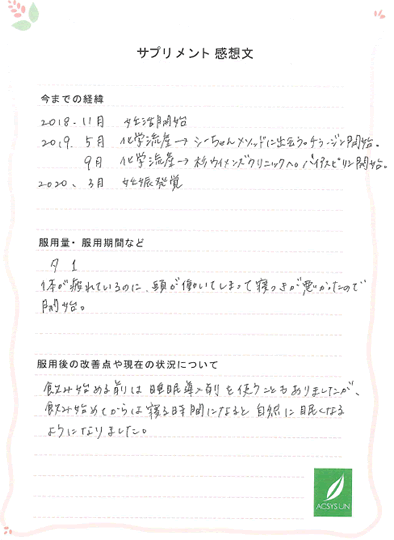 サプリメント 感想文
今までの経緯
2018.11月 妊活開始
2019. 5月 化学流産→シーちゃんメソッドに出会う。チラージン開始。
9月 化学流産→杉ウイメンズクリニックへ。バイアスピリン開始。
2020. 3月 妊娠発覚
服用量・服用期間など
夕 1
体が疲れているのに、頭が働いてしまって寝つきが悪かったので
開始。
服用後の改善点や現在の状況について
飲み始める前は睡眠導入剤を使うこともありましたが、
飲み始めてからは寝る時間になると自然に眠くなる
ようになりました。
ACSYSUN